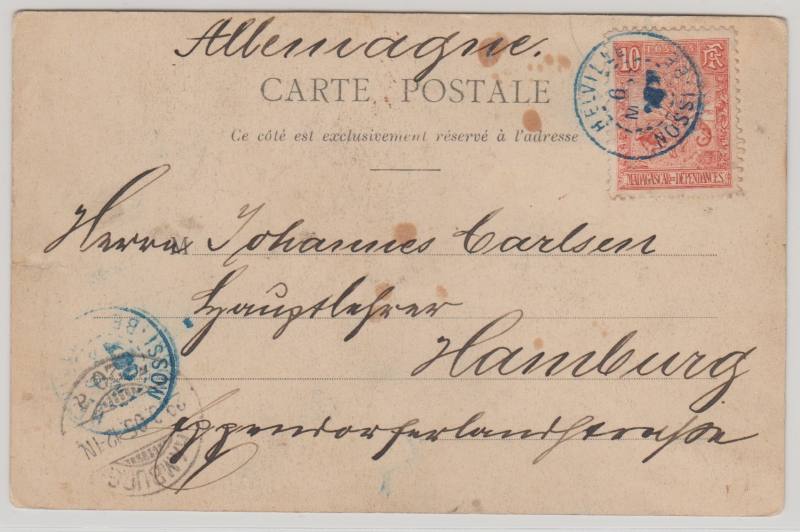 Allemagne.
CARTE POSTALE
Ce côté est exclusivement réservé à l'adresse
10 POSTES RF
MADAGASCAR ET DÉPENDANCES
HELLVILLE NOSSI-BE
Herrn Johannes Carlsen
Hauptlehrer
Hamburg
Eppendorferlandstraße
NOSSI-BE
HAMBURG